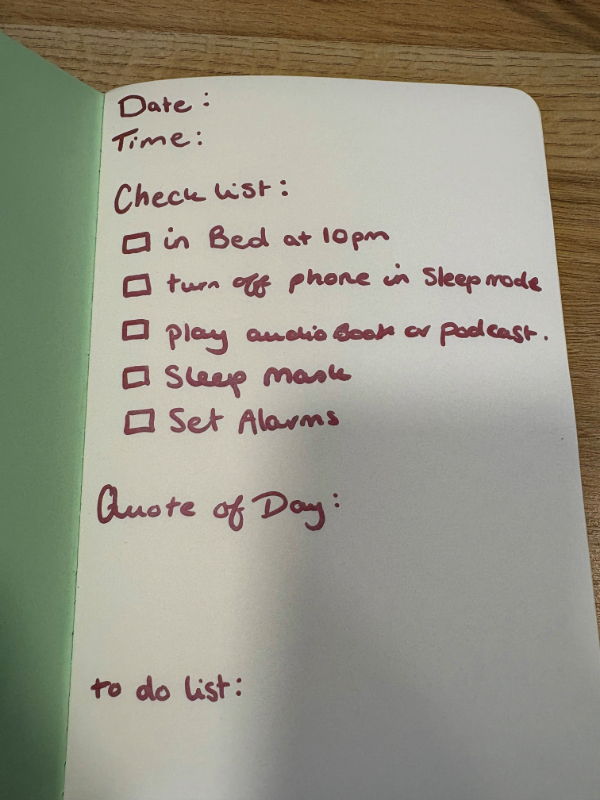 Date:
Time:
Check list:
in Bed at 10pm
turn off phone in Sleepmode
play audioBook or podcast.
Sleep mask
Set Alarms
Quote of Day:
to do list: